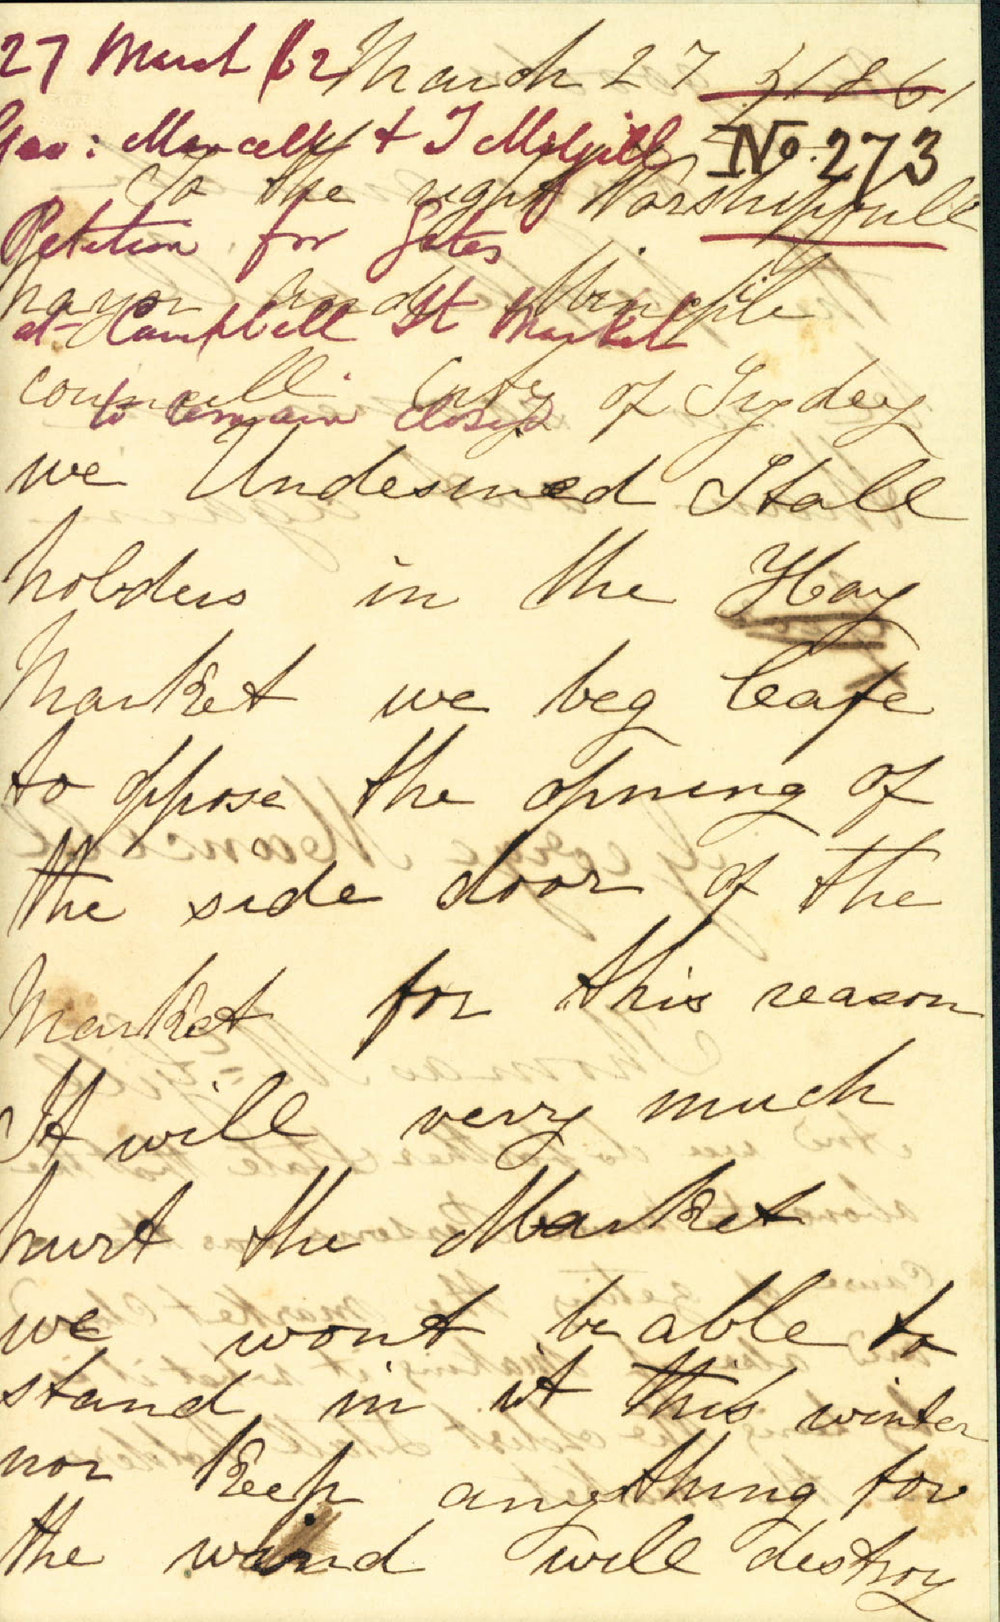 27 March /62
March 27 1861
Geo: Mancell & T McGill
No. 273
To the right Worshipfull
Petition for Gates
mayor and
at Campbell St Market
councell City of Sydey
to remain closed
we Undesined Stall
holders in the Hay
Market we beg leafe
to oppose the opning of
the side door of the
Market for this reason
It will very much
hurt the Market
we wont be able to
stand in it this winter
nor keep anything for
the wind will destroy